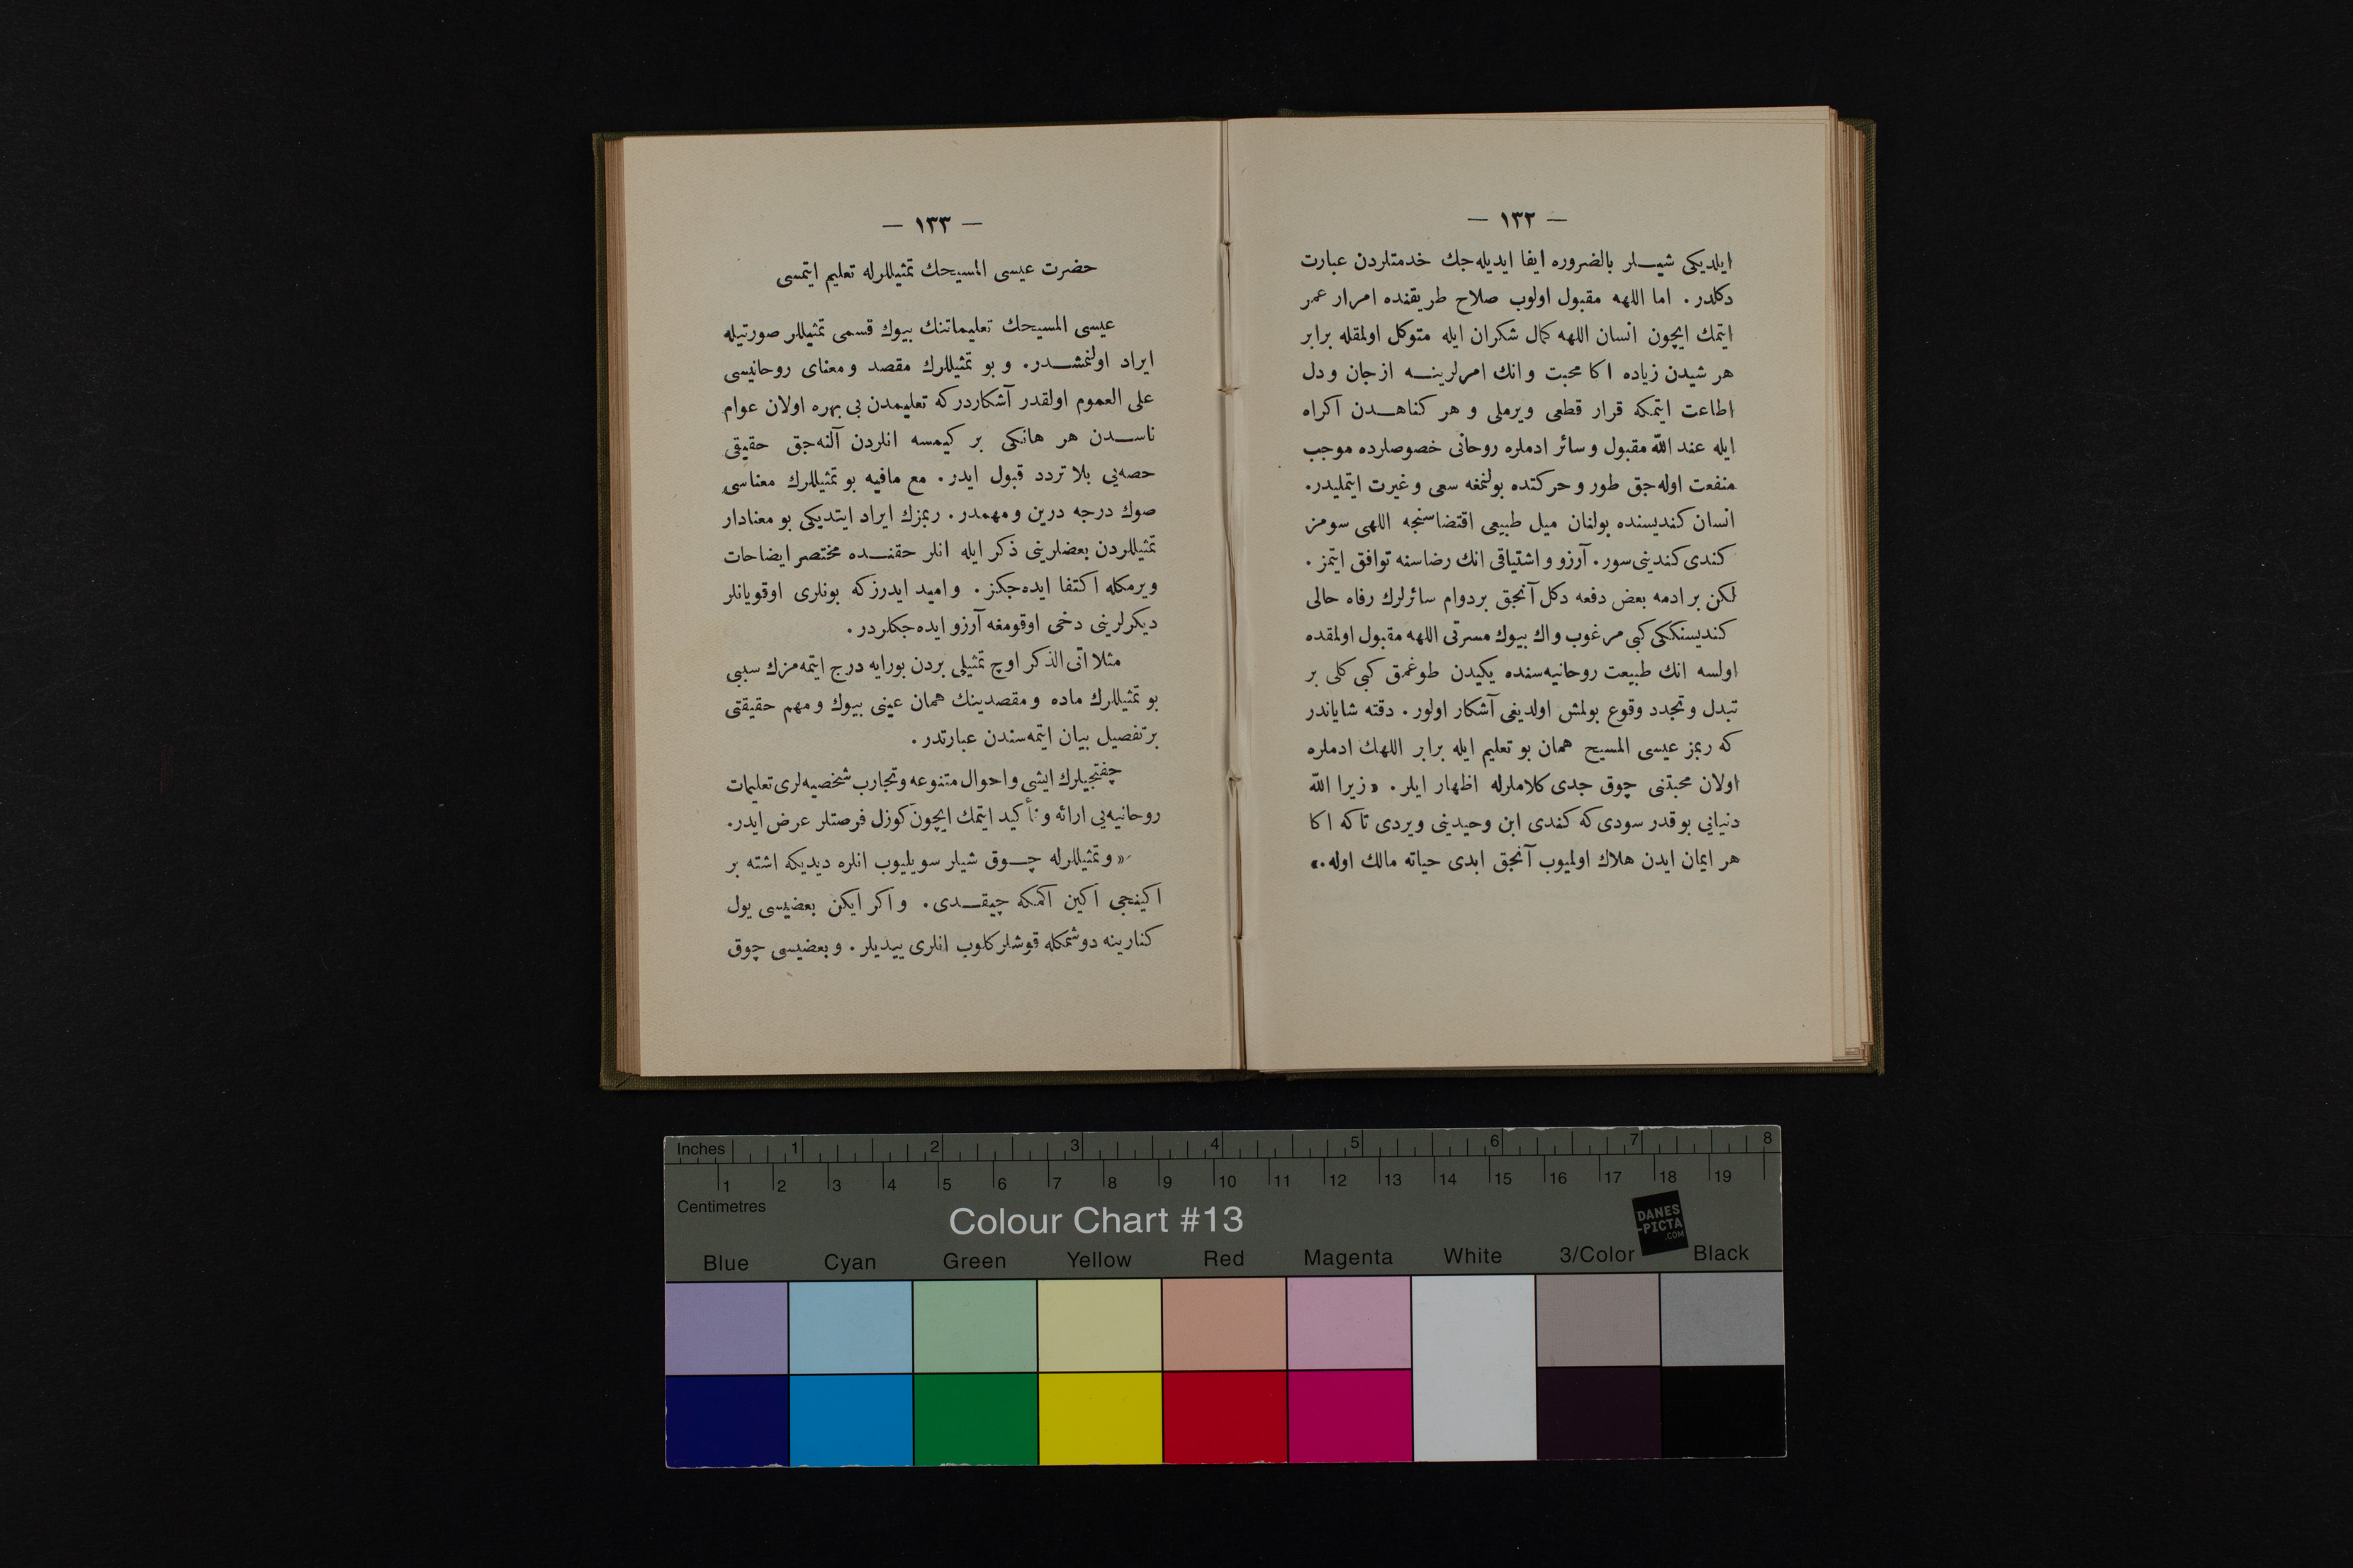 — ١٣٢ —
ايلديكى شيلر بالضروره ايفا ايديله‌جك خدمتلردن عبارت
دكلدر. اما اللهه مقبول اولوب صلاح طريقنده امرار عمر
ايتمك ايچون انسان اللهه كمال شكران ايله متوكل اولمقله برابر
هر شيدن زياده اكا محبت و انك امرلرينه از جان و دل
اطاعت ايتمكه قرار قطعى ويرملى و هر كناهدن اكراه
ايله عند الله مقبول و سائر ادملره روحانى خصوصلرده موجب
منفعت اوله‌جق طور و حركتده بولنمغه سعى و غيرت ايتمليدر.
انسان كنديسنده بولنان ميل طبيعى اقتضاسنجه اللهى سومز
كندى كندينى سور. آرزو و اشتياقى انك رضاسنه توافق ايتمز.
لكن بر ادمه بعض دفعه دكل آنجق بردوام سائرلرك رفاه حالى
كنديسنككى كبى مرغوب واك بيوك مسرتى اللهه مقبول اولمقده
اولسه انك طبيعت روحانيه‌سنده يكيدن طوغمق كبى كلى بر
تبدل و تجدد وقوع بولمش اولديغى آشكار اولور. دقته شاياندر
كه ربمز عيسى المسيح همان بو تعليم ايله برابر اللهك ادملره
اولان محبتنى چوق جدى كلاملرله اظهار ايلر. «زيرا الله
دنيايى بو قدر سودى كه كندى ابن وحيدينى ويردى تا كه اكا
هر ايمان ايدن هلاك اولميوب آنجق ابدى حياته مالك اوله.»
— ١٣٣ —
حضرت عيسى المسيحك تمثيللرله تعليم ايتمسى
عيسى المسيحك تعليماتنك بيوك قسمى تمثيللر صورتيله
ايراد اولنمشدر. و بو تمثيللرك مقصد و معناى روحانيسى
على العموم اولقدر آشكاردركه تعليمدن بى بهره اولان عوام
ناسدن هر هانكى بر كيمسه انلردن آلنه‌جق حقيقى
حصه‌يى بلا تردد قبول ايدر. مع مافيه بو تمثيللرك معناسى
صوك درجه درين و مهمدر. ربمزك ايراد ايتديكى بو معنادار
تمثيللردن بعضلرينى ذكر ايله انلر حقنده مختصر ايضاحات
ويرمكله اكتفا ايده‌جكز. و اميد ايدرزكه بونلرى اوقويانلر
ديكرلرينى دخى اوقومغه آرزو ايده‌جكلردر.
مثلا آتى الذكر اوچ تمثيلى بردن بورايه درج ايتمه‌مزك سببى
بو تمثيللرك ماده و مقصدينك همان عينى بيوك و مهم حقيقتى
بر تفصيل بيان ايتمه‌سندن عبارتدر.
چفتجيلرك ايشى و احوال متنوعه و تجارب شخصيه‌لرى تعليمات
روحانيه‌يى ارائه و تأكيد ايتمك ايچون كوزل فرصتلر عرض ايدر.
«و تمثيللرله چوق شيلر سويليوب انلره ديديكه اشته بر
اكينجى اكين اكمكه چيقدى. و اكر ايكن بعضيسى يول
كنارينه دوشمكله قوشلر كلوب انلرى ييديلر. و بعضيسى چوق
Inches 1 2 3 4 5 6 7 8
1 2 3 4 5 6 7 8 9 10 11 12 13 14 15 16 17 18 19
Centimetres
Colour Chart #13
DANES
-PICTA
.COM
Blue Cyan Green Yellow Red Magenta White 3/Color Black